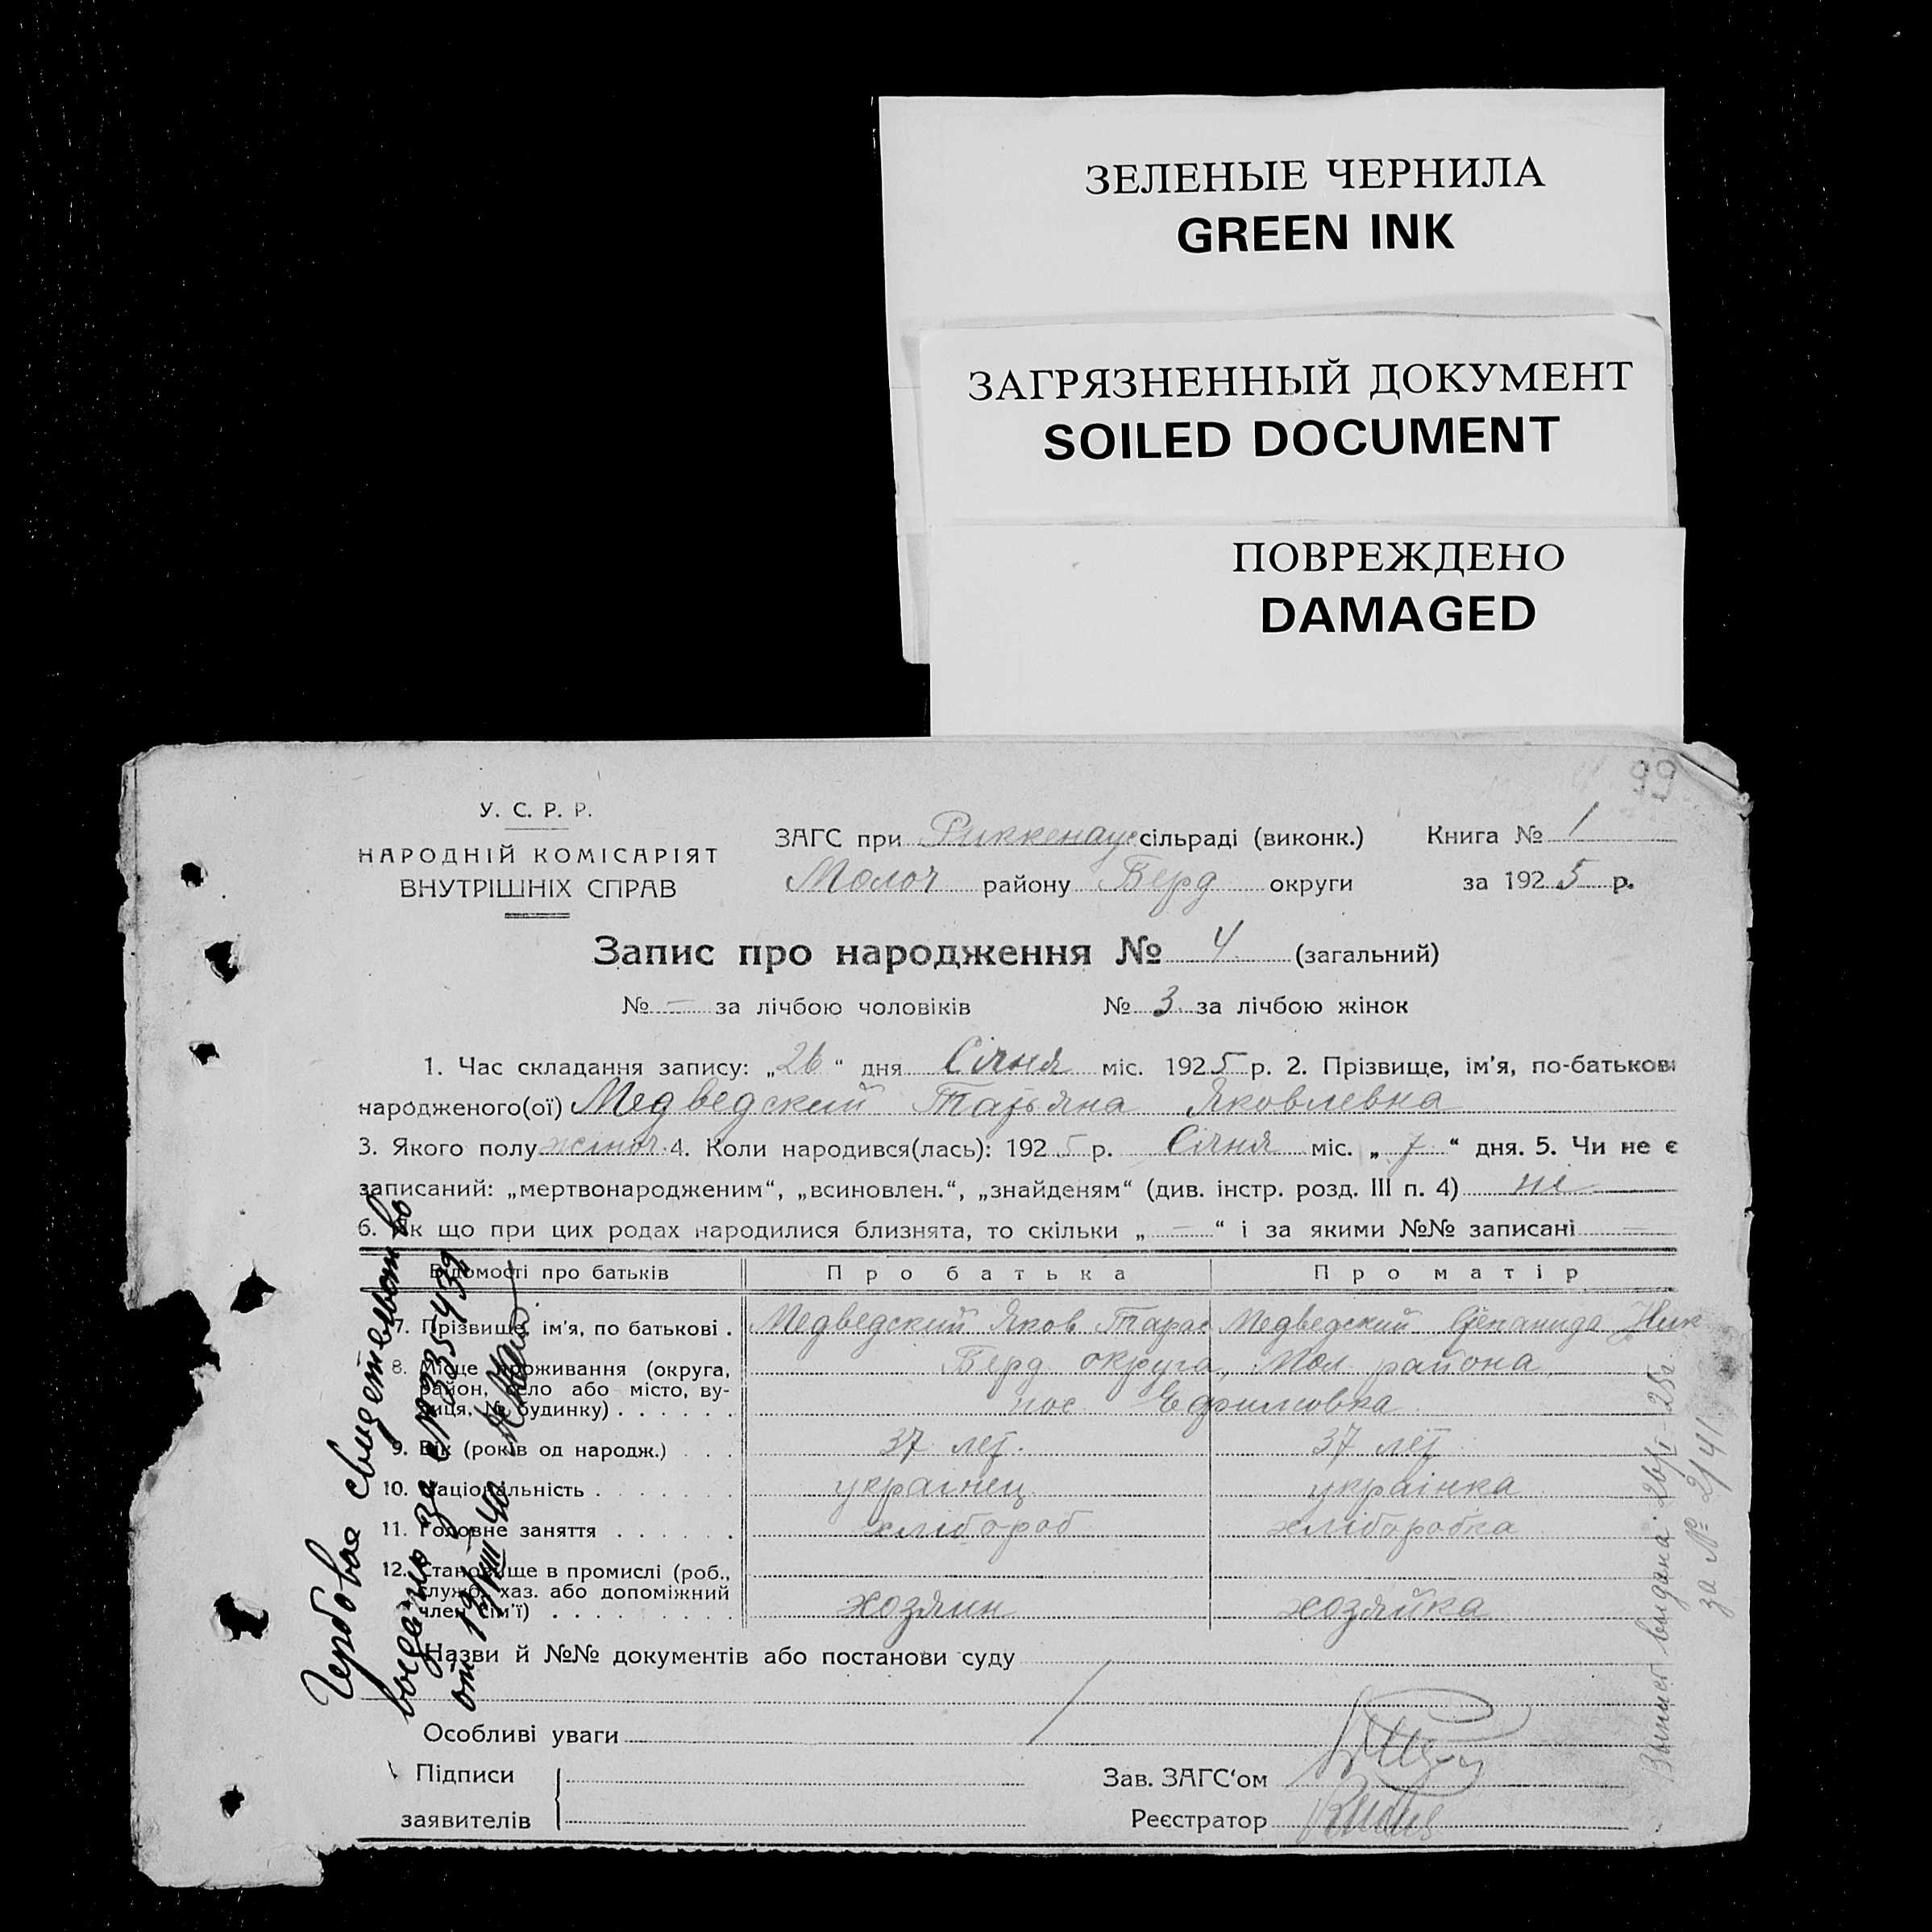 ЗЕЛЕНЫЕ ЧЕРНИЛА
GREEN INK
ЗАГРЯЗНЕННЫЙ ДОКУМЕНТ
SOILED DOCUMENT
ПОВРЕЖДЕНО
DAMAGED
99
У. С. Р. Р.
НАРОДНІЙ КОМІСАРІЯТ
ВНУТРІШНІХ СПРАВ
ЗАГС при Риккенаус сільраді (виконк.) Книга № 1
Молоч району Берд округи за 1925 р.
Запис про народження № 4 (загальний)
№ — за лічбою чоловіків № 3 за лічбою жінок
1. Час складання запису: „26“ дня Січня міс. 1925 р. 2. Прізвище, ім'я, по-батькові
народженого(ої) Медведский Татьяна Яковлевна
3. Якого полу жіноч. 4. Коли народився(лась): 1925 р. Січня міс. „7“ дня. 5. Чи не є
записаний: „мертвонародженим“, „всиновлен.“, „знайденям“ (див. інстр. розд. III п. 4) ні
6. Як що при цих родах народилися близнята, то скільки „—“ і за якими №№ записані —
Відомості про батьків Про батька Про матір
7. Прізвище, ім'я, по батькові . Медведский Яков Тарас Медведский Степанида Ник
8. Місце проживання (округа, Берд округа, Мол района,
район, село або місто, ву-
лиця, № будинку) . . . . . . пос
9. Вік (років од народж.) . . 37 лет. 37 лет
10. Національність . . . . . . . українец українка
11. Головне заняття . . . . . . хлібороб хліборобка
12. Становище в промислі (роб.,
служб., хаз. або допоміжний
член сім'ї) . . . . . . . . . хозяин хозяйка
Назви й №№ документів або постанови суду
Особливі уваги
Підписи
заявителів
Зав. ЗАГС'ом
Реєстратор
Гербовое свидетельство
выдано за № 335439
от 19/VIII 40
Випись видана 26/I 25г.
за № 2/41